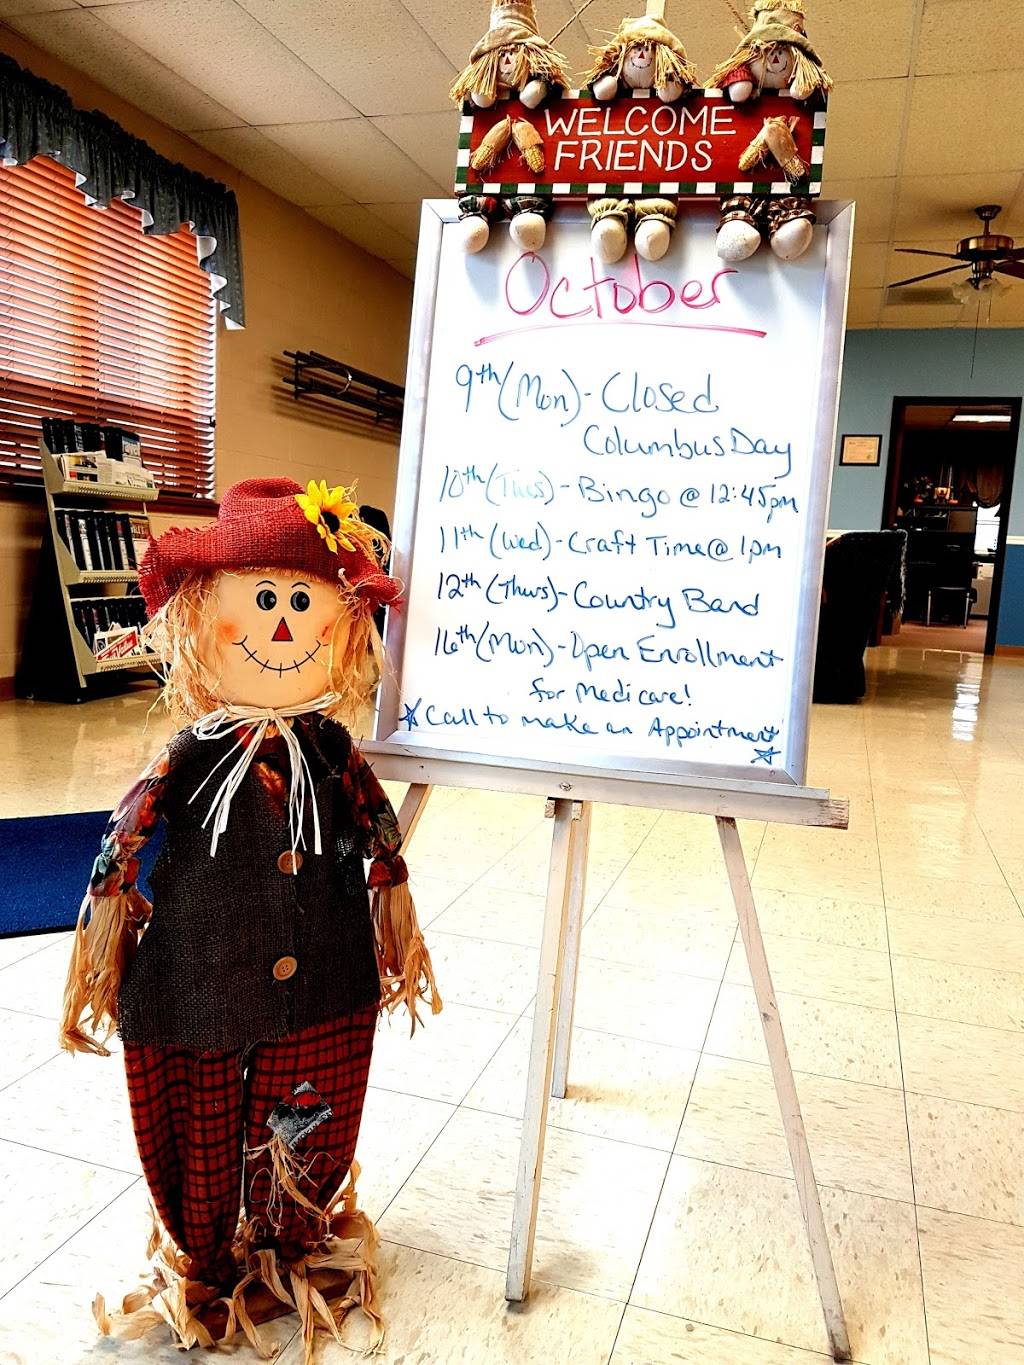 WELCOME
FRIENDS
October
9th (Mon) - Closed
Columbus Day
10th (Tues) - Bingo @ 12:45pm
11th (Wed) - Craft Time @ 1pm
12th (Thurs) - Country Band
16th (Mon) - Open Enrollment
for Medicare!
☆ Call to make an Appointment ☆